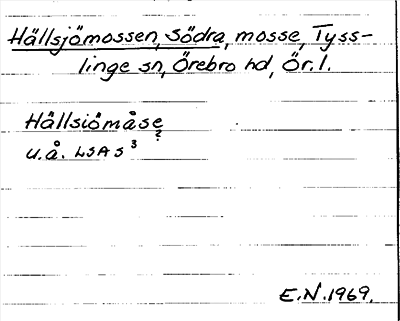 Hällsjömossen, Södra, mosse, Tyss-
linge sn, Örebro hd, Ör. l.
Hällsiömåse
?
u.å. LSA S³
E.N. 1969.